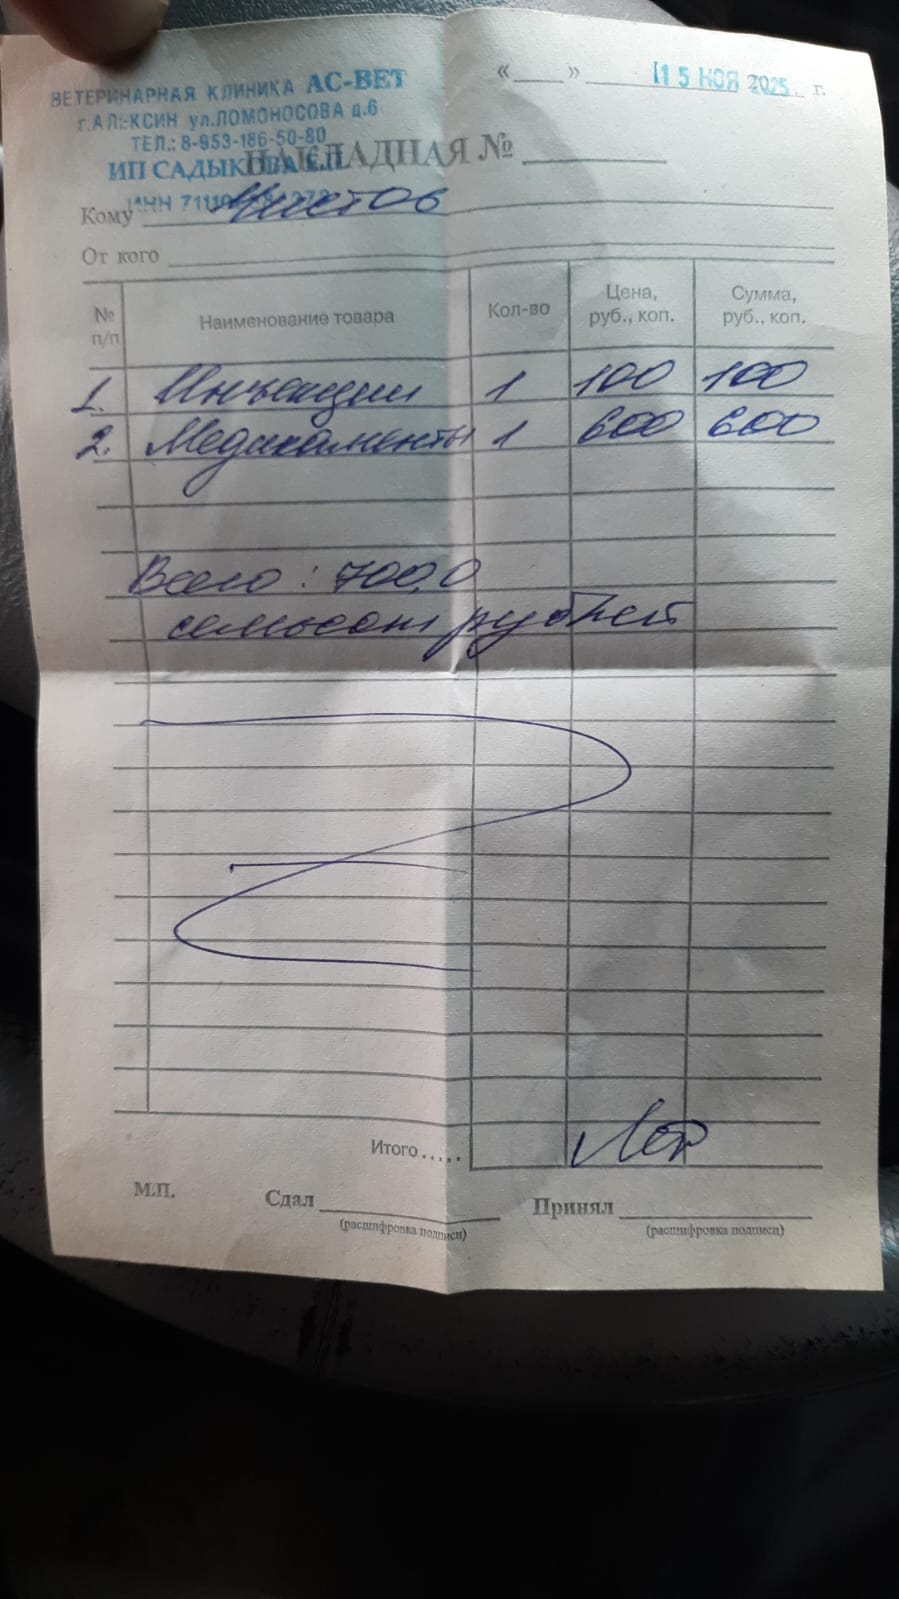 ВЕТЕРИНАРНАЯ КЛИНИКА АС-ВЕТ
г.АЛЕКСИН ул.ЛОМОНОСОВА д.6
ТЕЛ.: 8-953-186-50-80
ИП САДЫКОВА Е.П.
ИНН
« » 15 НОЯ 2025 г.
НАКЛАДНАЯ №
Кому Чистов
От кого
№ п/п Наименование товара Кол-во Цена, руб., коп. Сумма, руб., коп.
1. Инъекции 1 100 100
2. Медикаменты 1 600 600
Всего : 700,0
семьсот рублей
Итого.....
М.П. Сдал Принял
(расшифровка подписи) (расшифровка подписи)